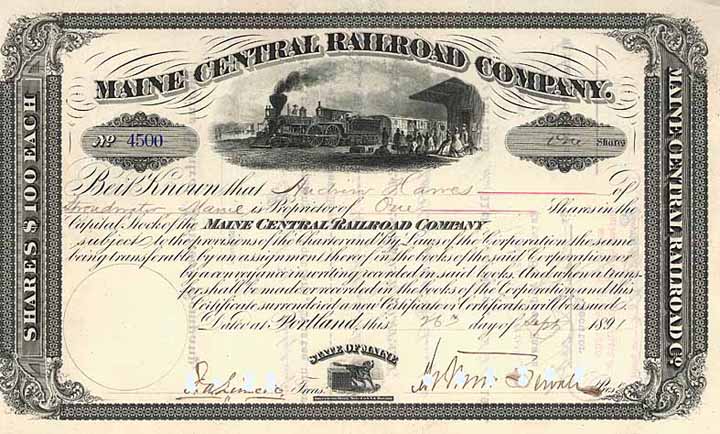 MAINE CENTRAL RAILROAD COMPANY.
SHARES $100 EACH
MAINE CENTRAL RAILROAD Co.
No 4500
One Shares
Be it Known that Andrew Hawes of
Maine is Proprietor of One Shares in the
Capital Stock of the MAINE CENTRAL RAILROAD COMPANY
subject to the provisions of the Charter and By Laws of the Corporation the same
being transferable by an assignment thereof in the books of the said Corporation or
by a conveyance in writing recorded in said books. And when a trans-
fer shall be made or recorded in the books of the Corporation and this
Certificate surrendered a new Certificate or Certificates will be issued.
Dated at Portland, this 26th day of Sept 1891
STATE OF MAINE
Treas.
Prest.